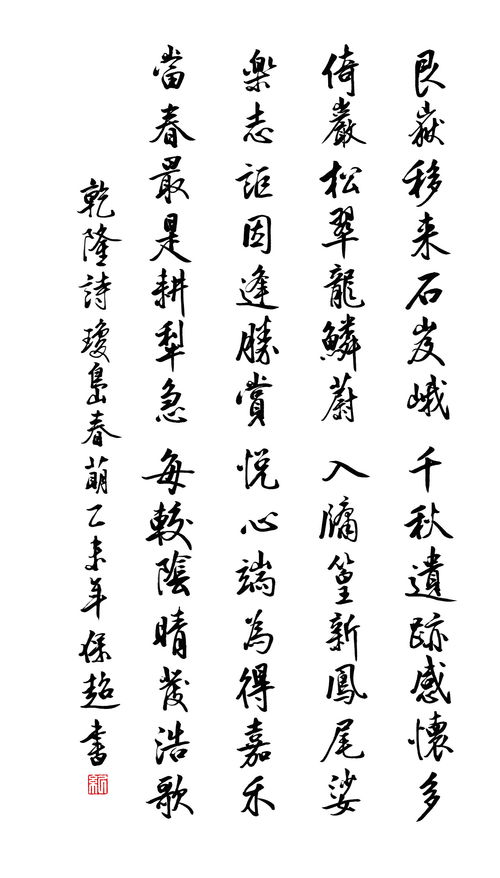 艮嶽移来石岌峨 千秋遺跡感懷多
倚巖松翠龍鱗蔚 入牖篁新鳳尾娑
楽志詎因逢勝賞 悦心端為得嘉禾
當春最是耕犁急 每較陰晴發浩歌
乾隆詩瓊島春萌乙未年保超書